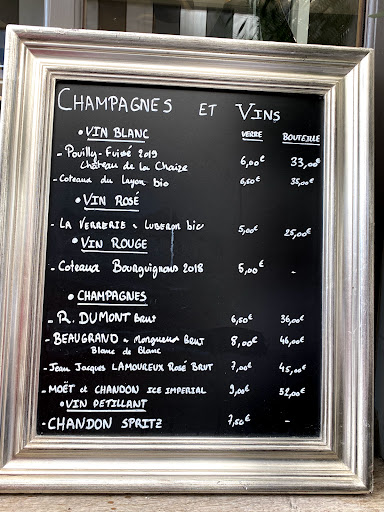 CHAMPAGNES ET VINS
• VIN BLANC VERRE BOUTEILLE
- Pouilly-Fuissé 2019 6,00€ 33,00€
Château de la Chaize
- Coteaux du Layon bio 6,50€ 35,00€
• VIN ROSÉ
- LA VERRERIE - LUBERON bio 5,00€ 25,00€
• VIN ROUGE
- Coteaux Bourguignons 2018 5,00€ -
• CHAMPAGNES
- R. DUMONT BRUT 6,50€ 36,00€
- BEAUGRAND - Mongueux BRUT 8,00€ 46,00€
Blanc de Blanc
- Jean Jacques LAMOUREUX Rosé BRUT 7,00€ 45,00€
- MOËT et CHANDON ICE IMPERIAL 9,00€ 52,00€
• VIN PETILLANT
- CHANDON SPRITZ 7,50€ -